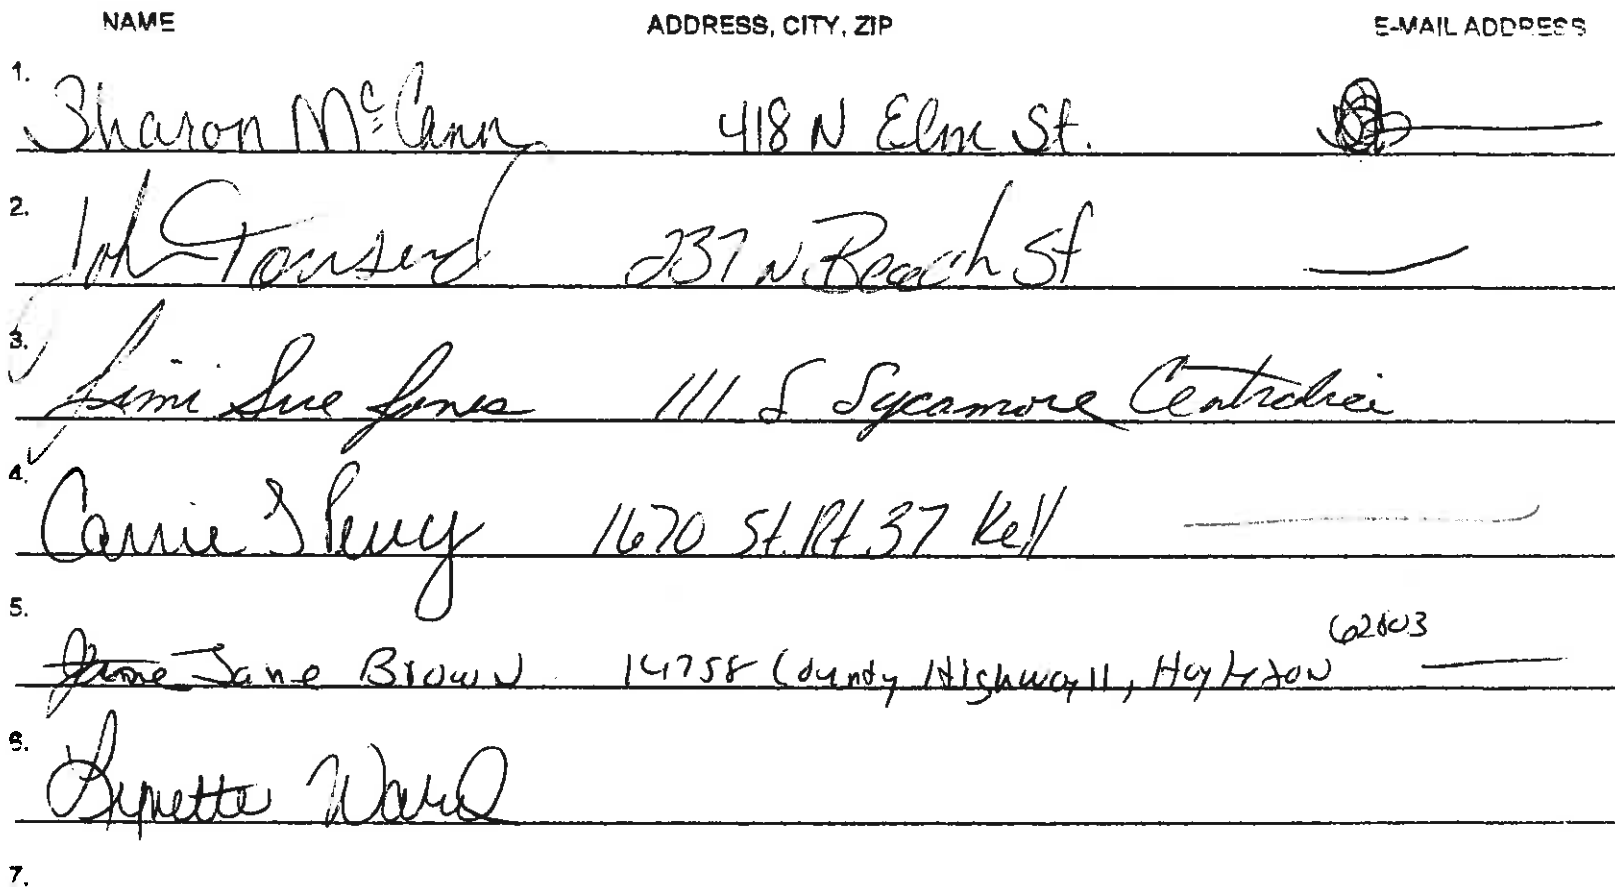 NAME ADDRESS, CITY, ZIP E-MAIL ADDRESS
1. Sharon McCann 418 N Elm St.
2. John Townsend 237 N Beach St
3. Jimi Sue Jones 111 S Sycamore Centralia
4. Carrie S Perry 1670 St. Rt. 37 Kell
5. Jane Brown 14758 County Highway 11, Hoyleton 62803
6. Lynette Ward
7.